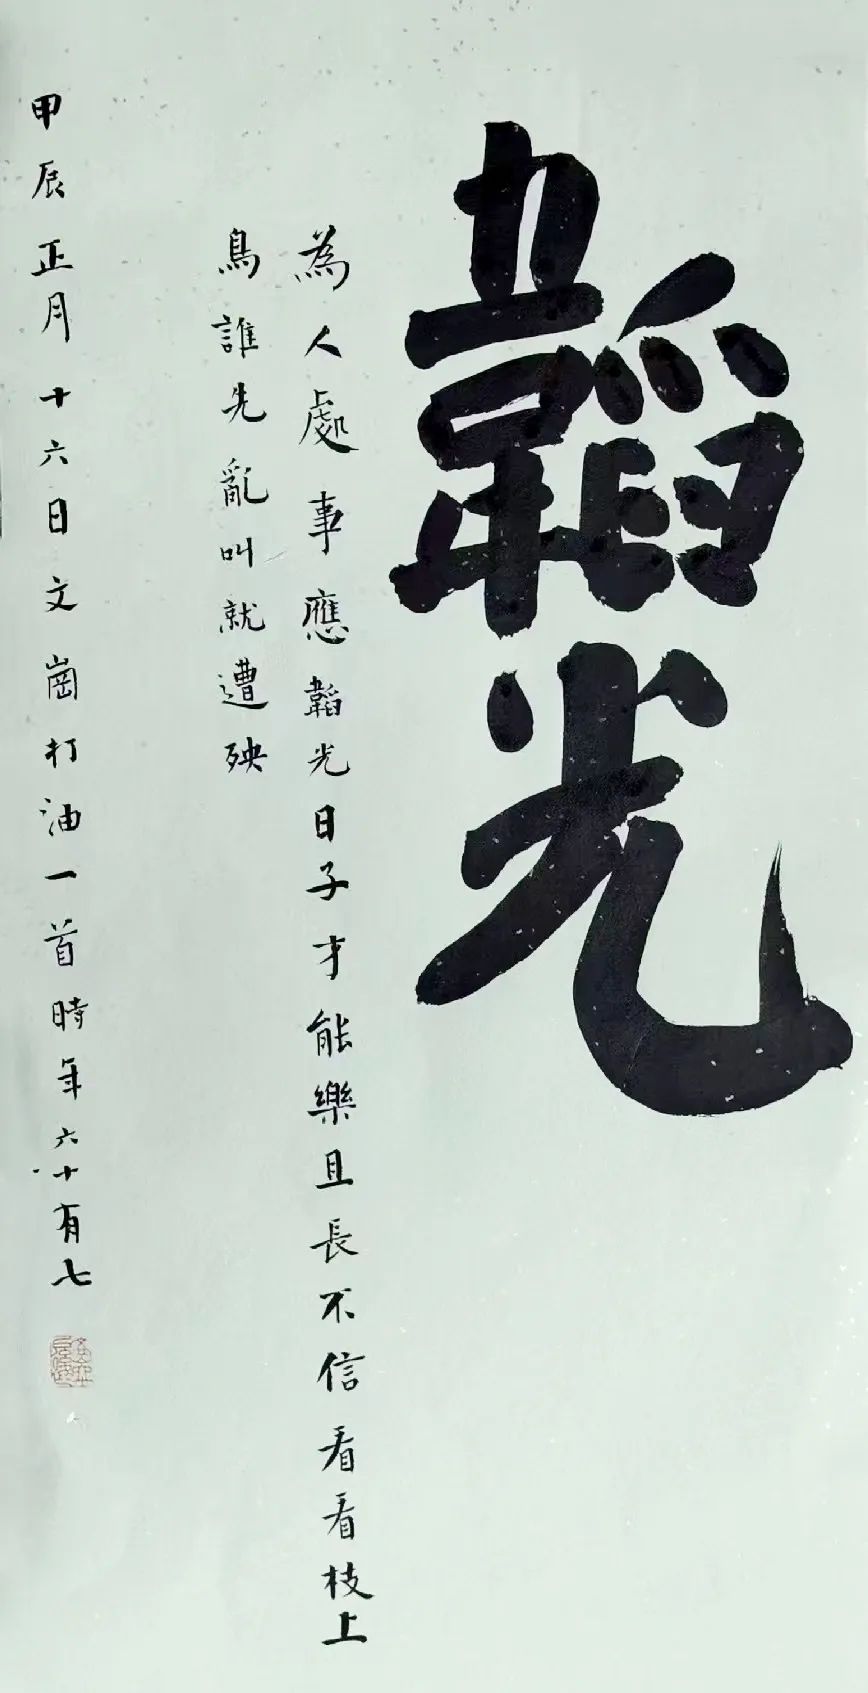 韜光
為人處事應韜光日子才能樂且長不信看看枝上
鳥誰先亂叫就遭殃
甲辰正月十六日文崗打油一首時年六十有七